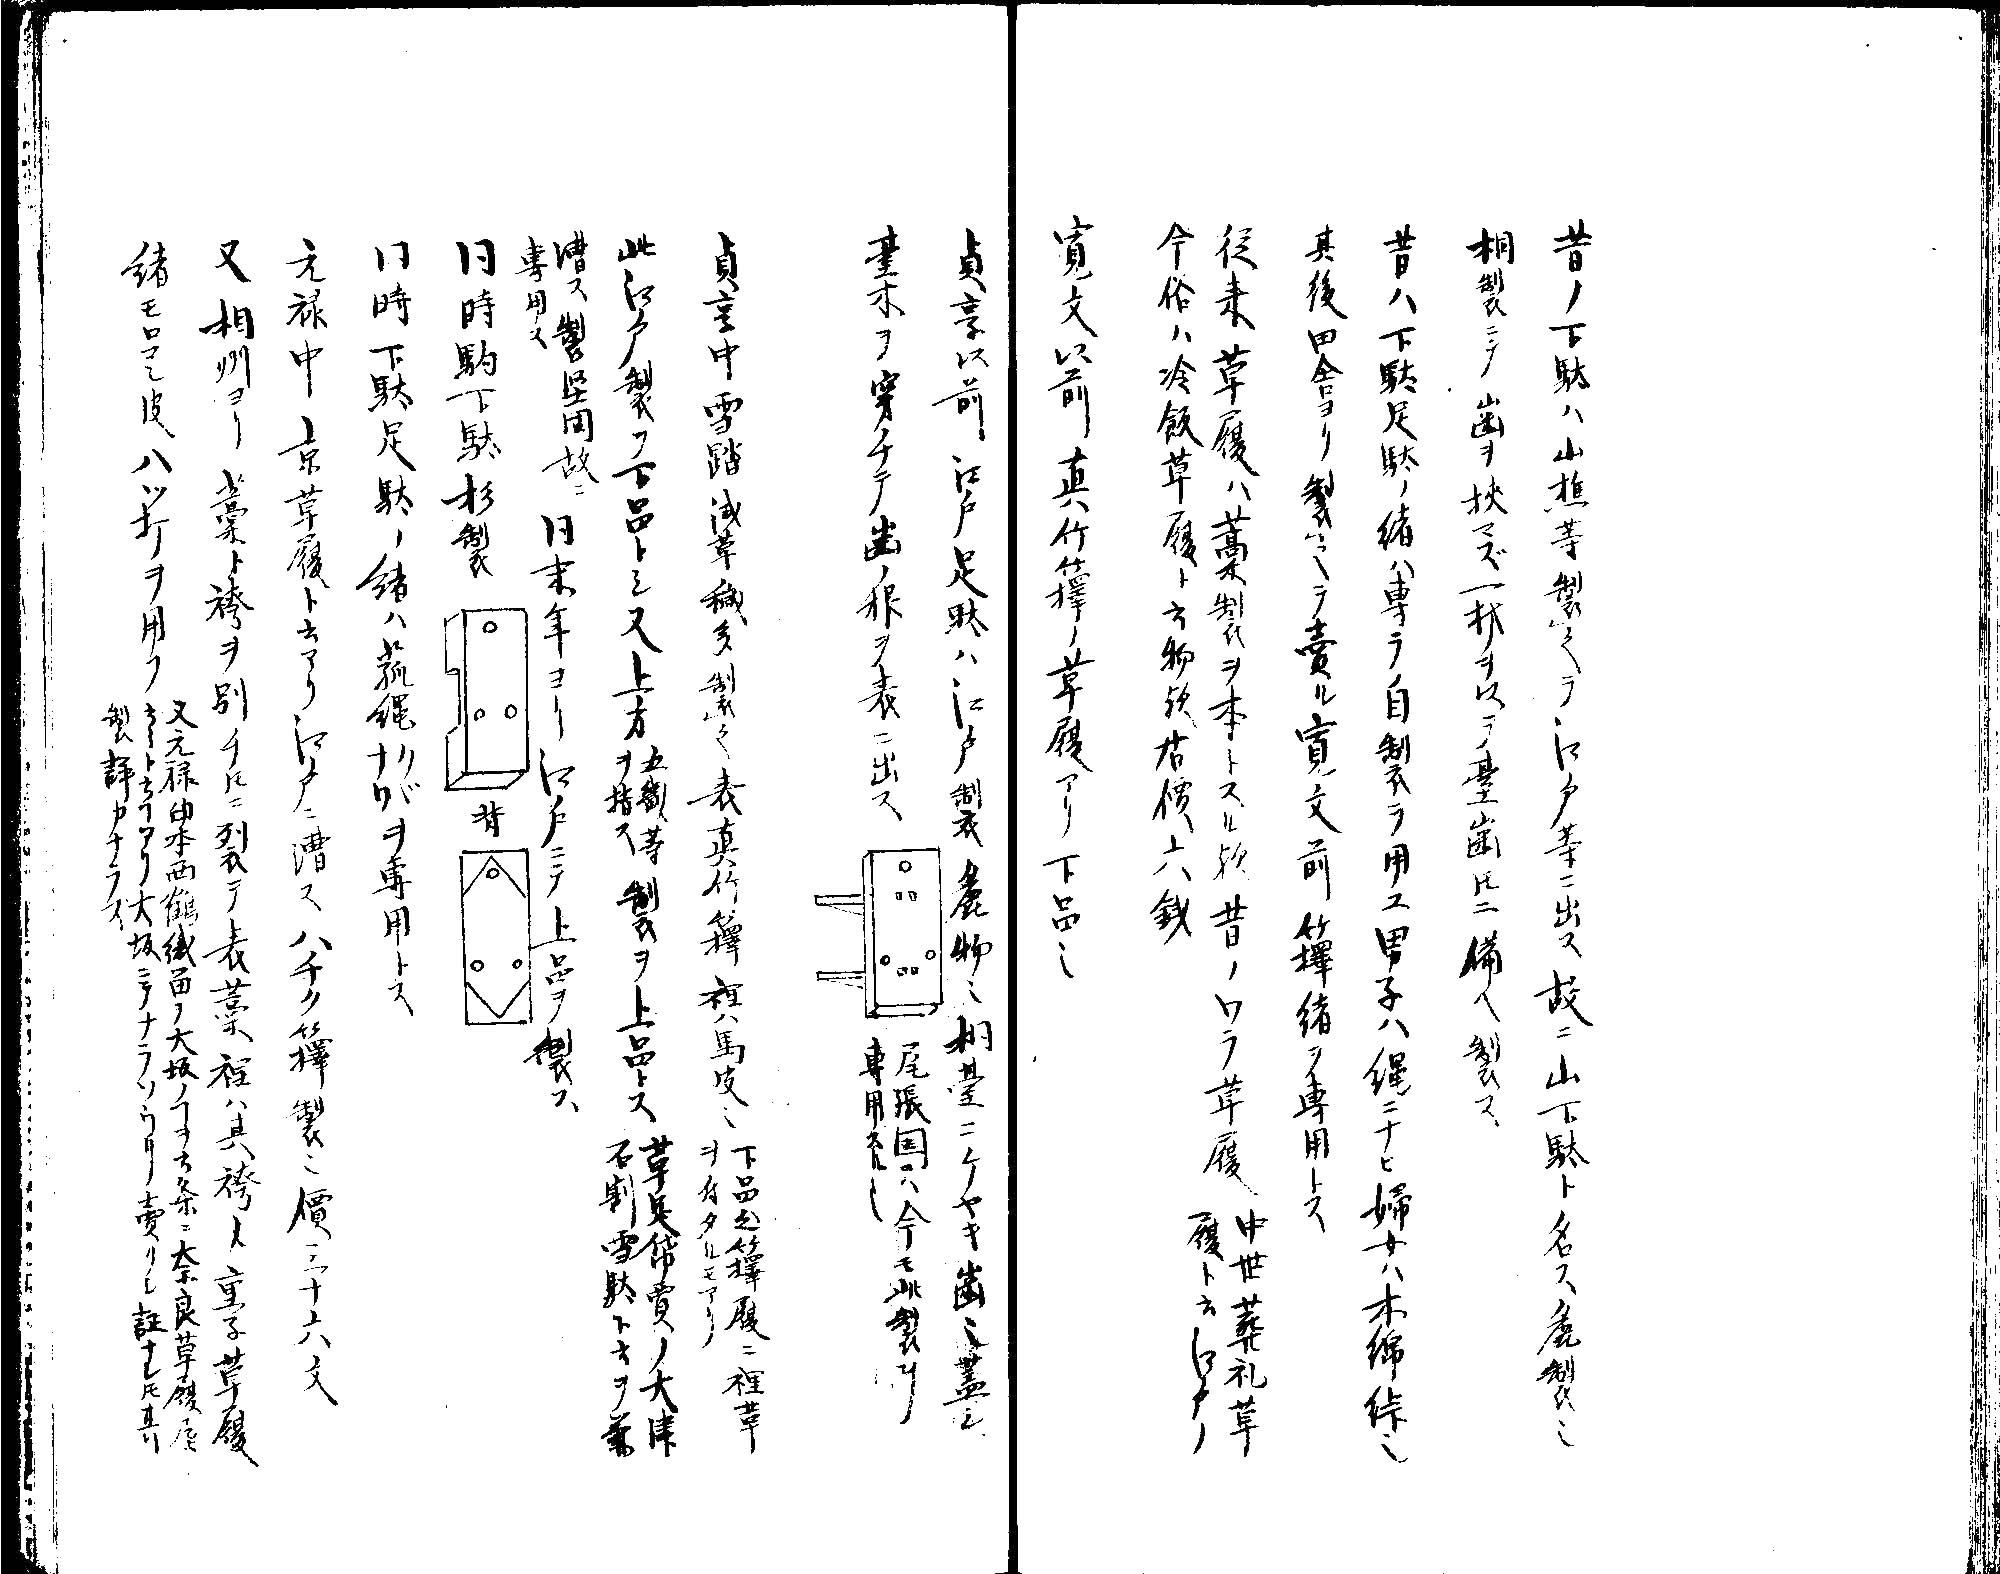 昔ノ下駄ハ山樵等製之テ江戸等ニ出ス故ニ山下駄ト名ス麁製也
桐製ニテ歯ヲ挾マズ一材ヲ以テ臺歯トモニ備ヘ製ス
昔ハ下駄足駄ノ緒ハ専ラ自製ヲ用ユ男子ハ縄ニナヒ婦女ハ木綿绔也
其後田舎ヨリ製之テ賣ル寛文前籜緒ヲ専用トス
従来草履ハ藁製ヲ本トスル歟昔ノワラ草履
中世葬礼草
履ト云江戸ノ
今俗ハ冷飯草履ト云物歟昔價六銭
寛文以前真竹籜ノ草履アリ下品也
貞享以前江戸足駄ハ江戸製麁物也桐臺ニケヤキ歯也蓋シ
臺木ヲ穿チテ歯ノ根ヲ表ニ出ス
尾張国ハ今モ此製
専用
貞享中雪踏浅草穢多製之表真竹籜裡ハ馬皮也
下品ハ籜履ニ裡革
ヲ付タルモアリ
此江戸製ヲ下品トシ又上方
五畿等
ヲ指ス
製ヲ上品トス
草臭俗賣ノ大津
石割雪駄ト云ヲ
漕ス製堅固故ニ
専用ス
同末年ヨリ江戸ニテ上品ヲ製ス
同時駒下駄杉製
背
同時下駄足駄ノ緒ハ菰縄ナリ
ヲ専用トス
元禄中京草履ト云アリ江戸ニ漕ス八チク籜製也價三十六文
又相州ヨリ藁ト袴ヲ別チトモニ裂テ表藁裡ハ其袴ト童子草履
緒モロコシ皮八ツ折ヲ用フ
又元禄中本西鶴織留ヲ大坂ノヲ云条ニ奈良草履屋
ト云アリ大坂ニテナラゾウリ賣リシ証ナレトモ其
製詳カナラズ